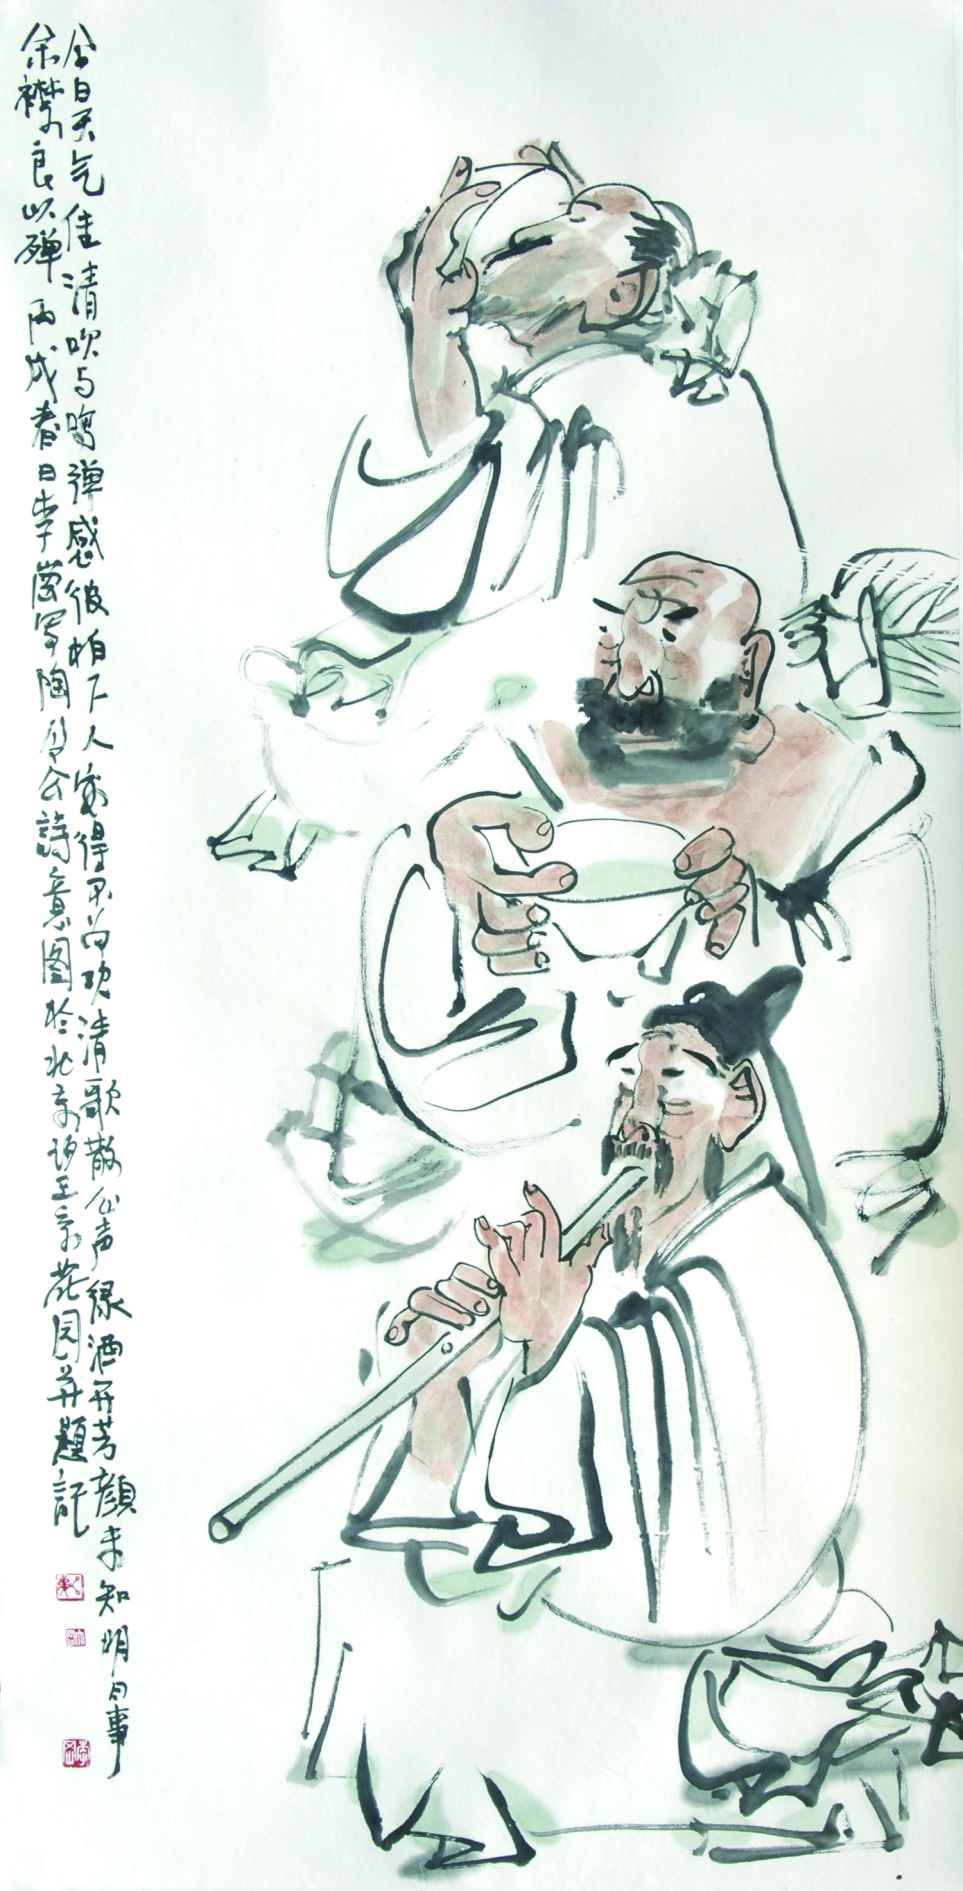 今日天气佳清吹与鸣弹感彼柏下人安得不为欢清歌散心声绿酒开芳颜未知明日事
余襟良以殚 丙戌春日李写陶令公詩意图於北京望京花园并題記